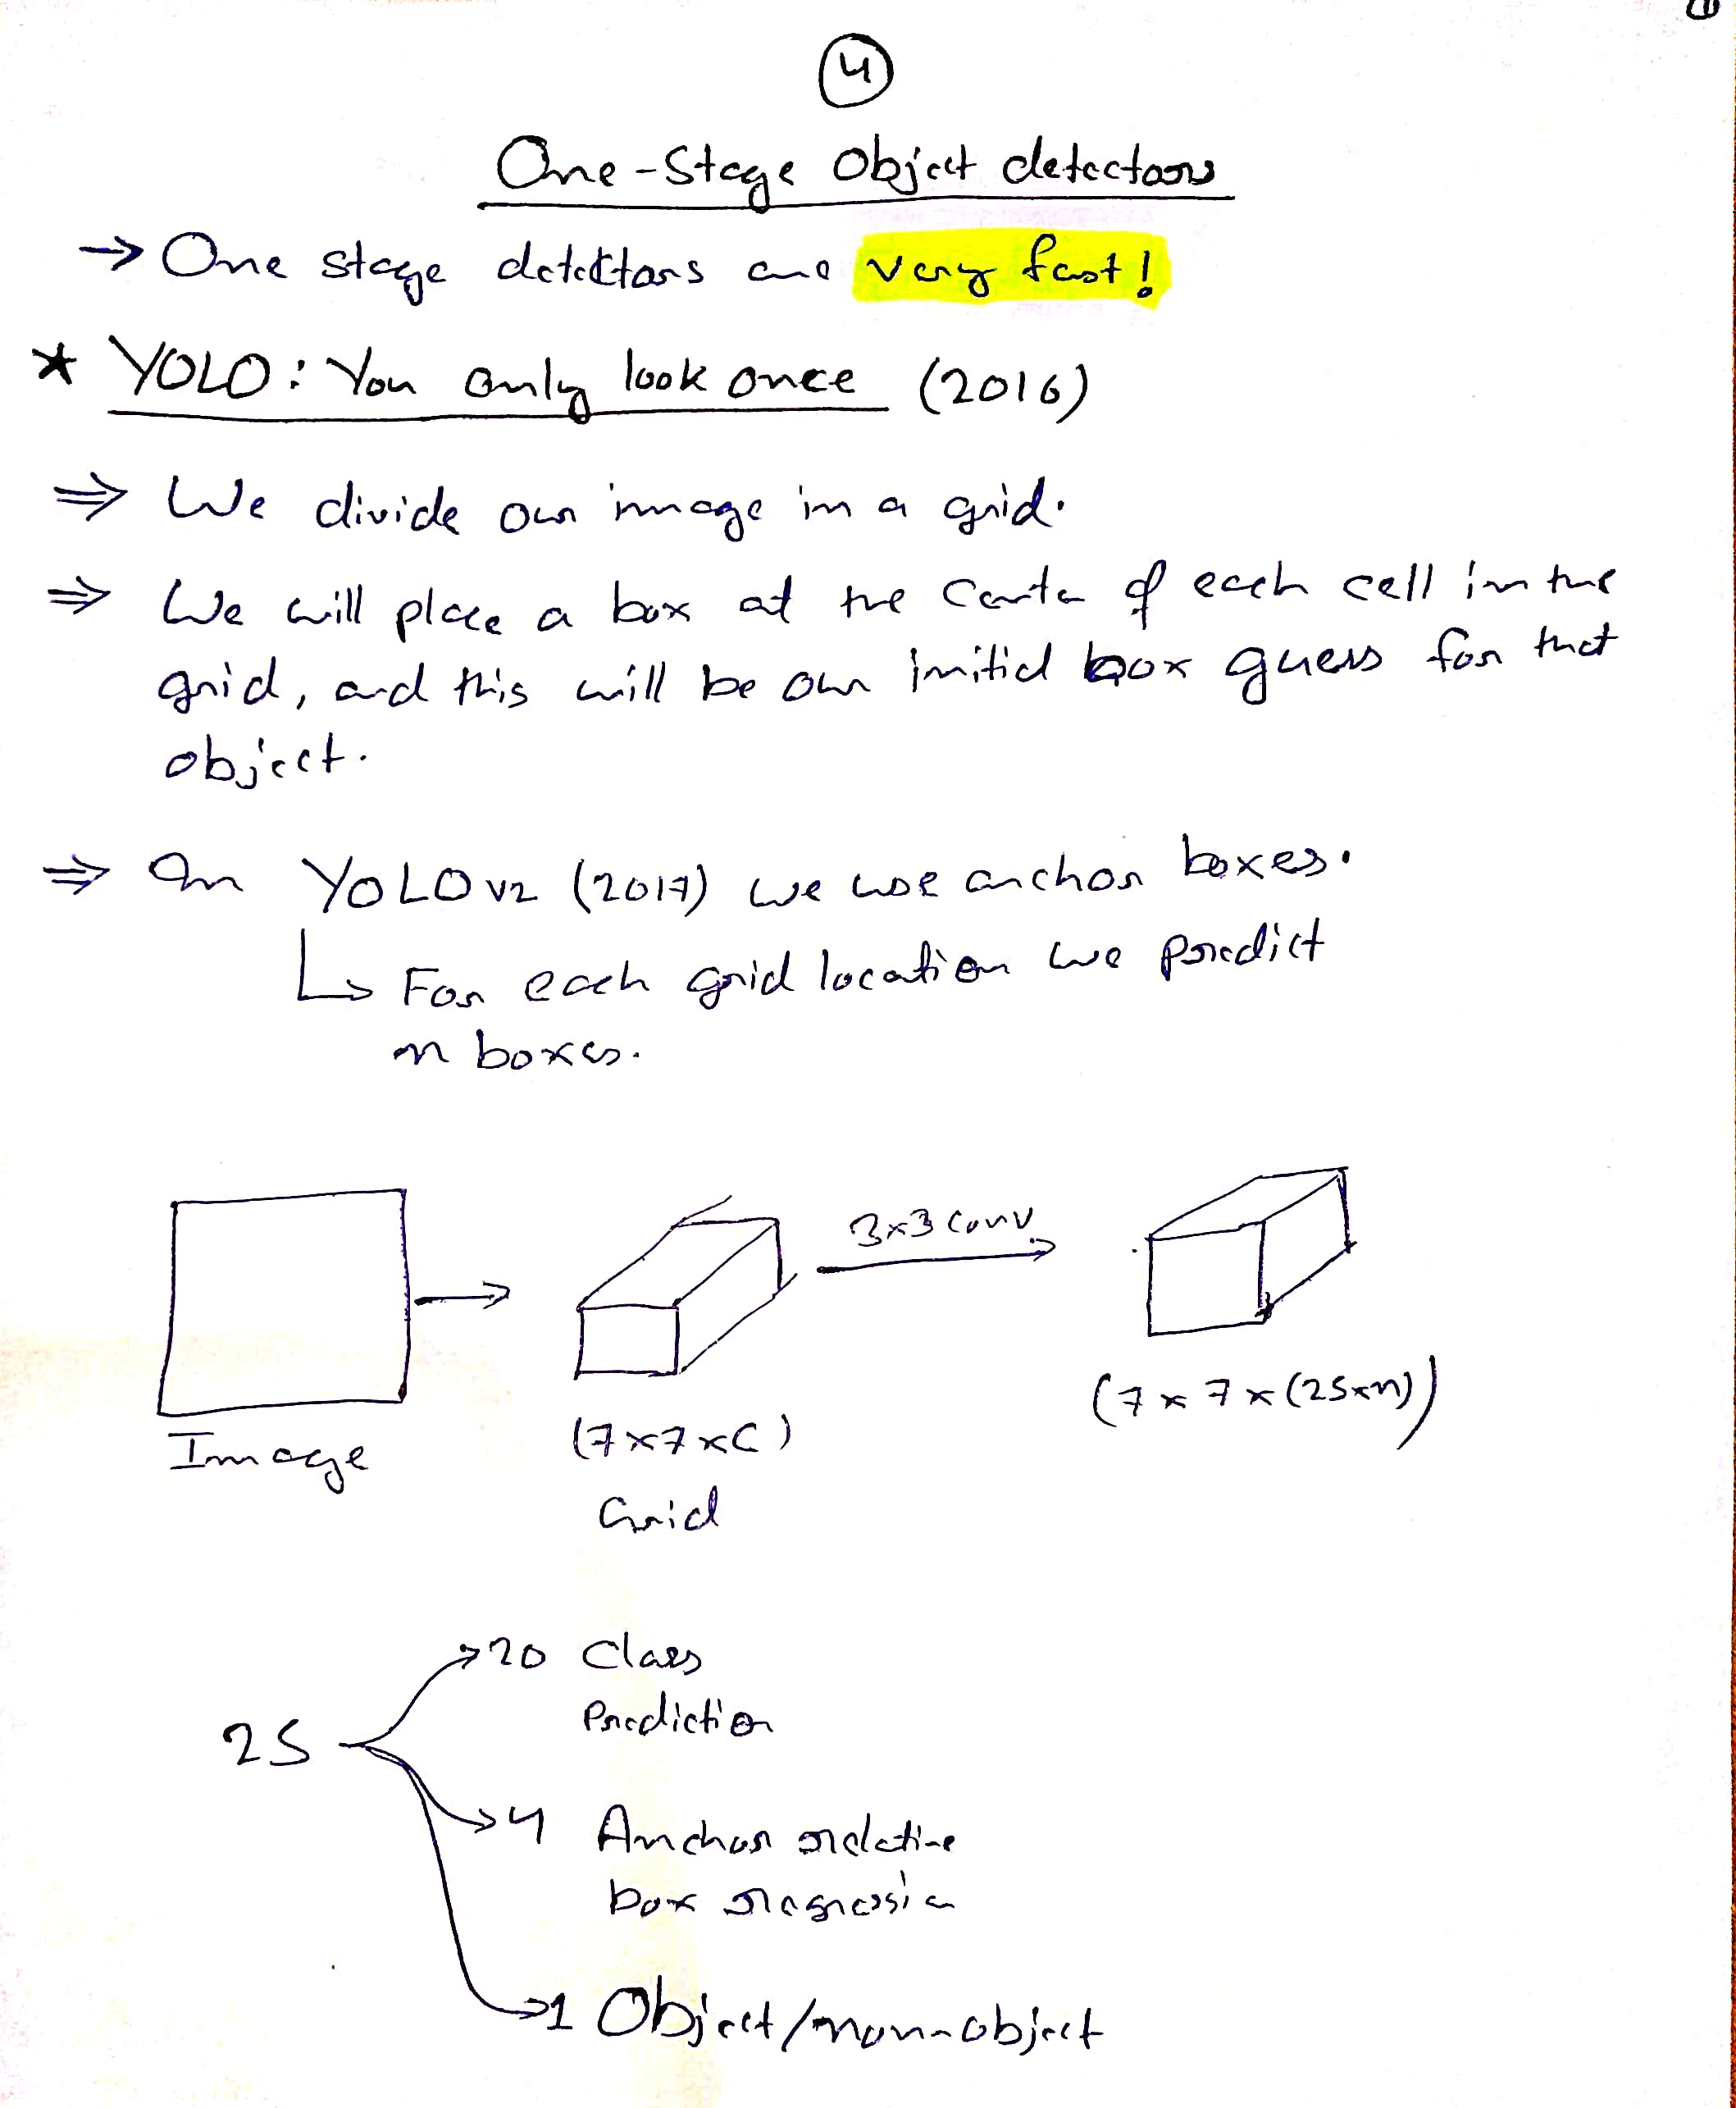 4
One-Stage Object detectors
→ One stage detectors are very fast!
* YOLO: You only look once (2016)
⇒ We divide our image in a grid.
⇒ We will place a box at the center of each cell in the
grid, and this will be our initial box guess for that
object.
⇒ In YOLOv2 (2017) we use anchor boxes.
↳ For each grid location we predict
n boxes.
3x3 conv
(7x7x(25xn))
(7x7xC)
Image
Grid
20 Class
Prediction
25
4 Anchor relative
box regression
1 Object/non-object